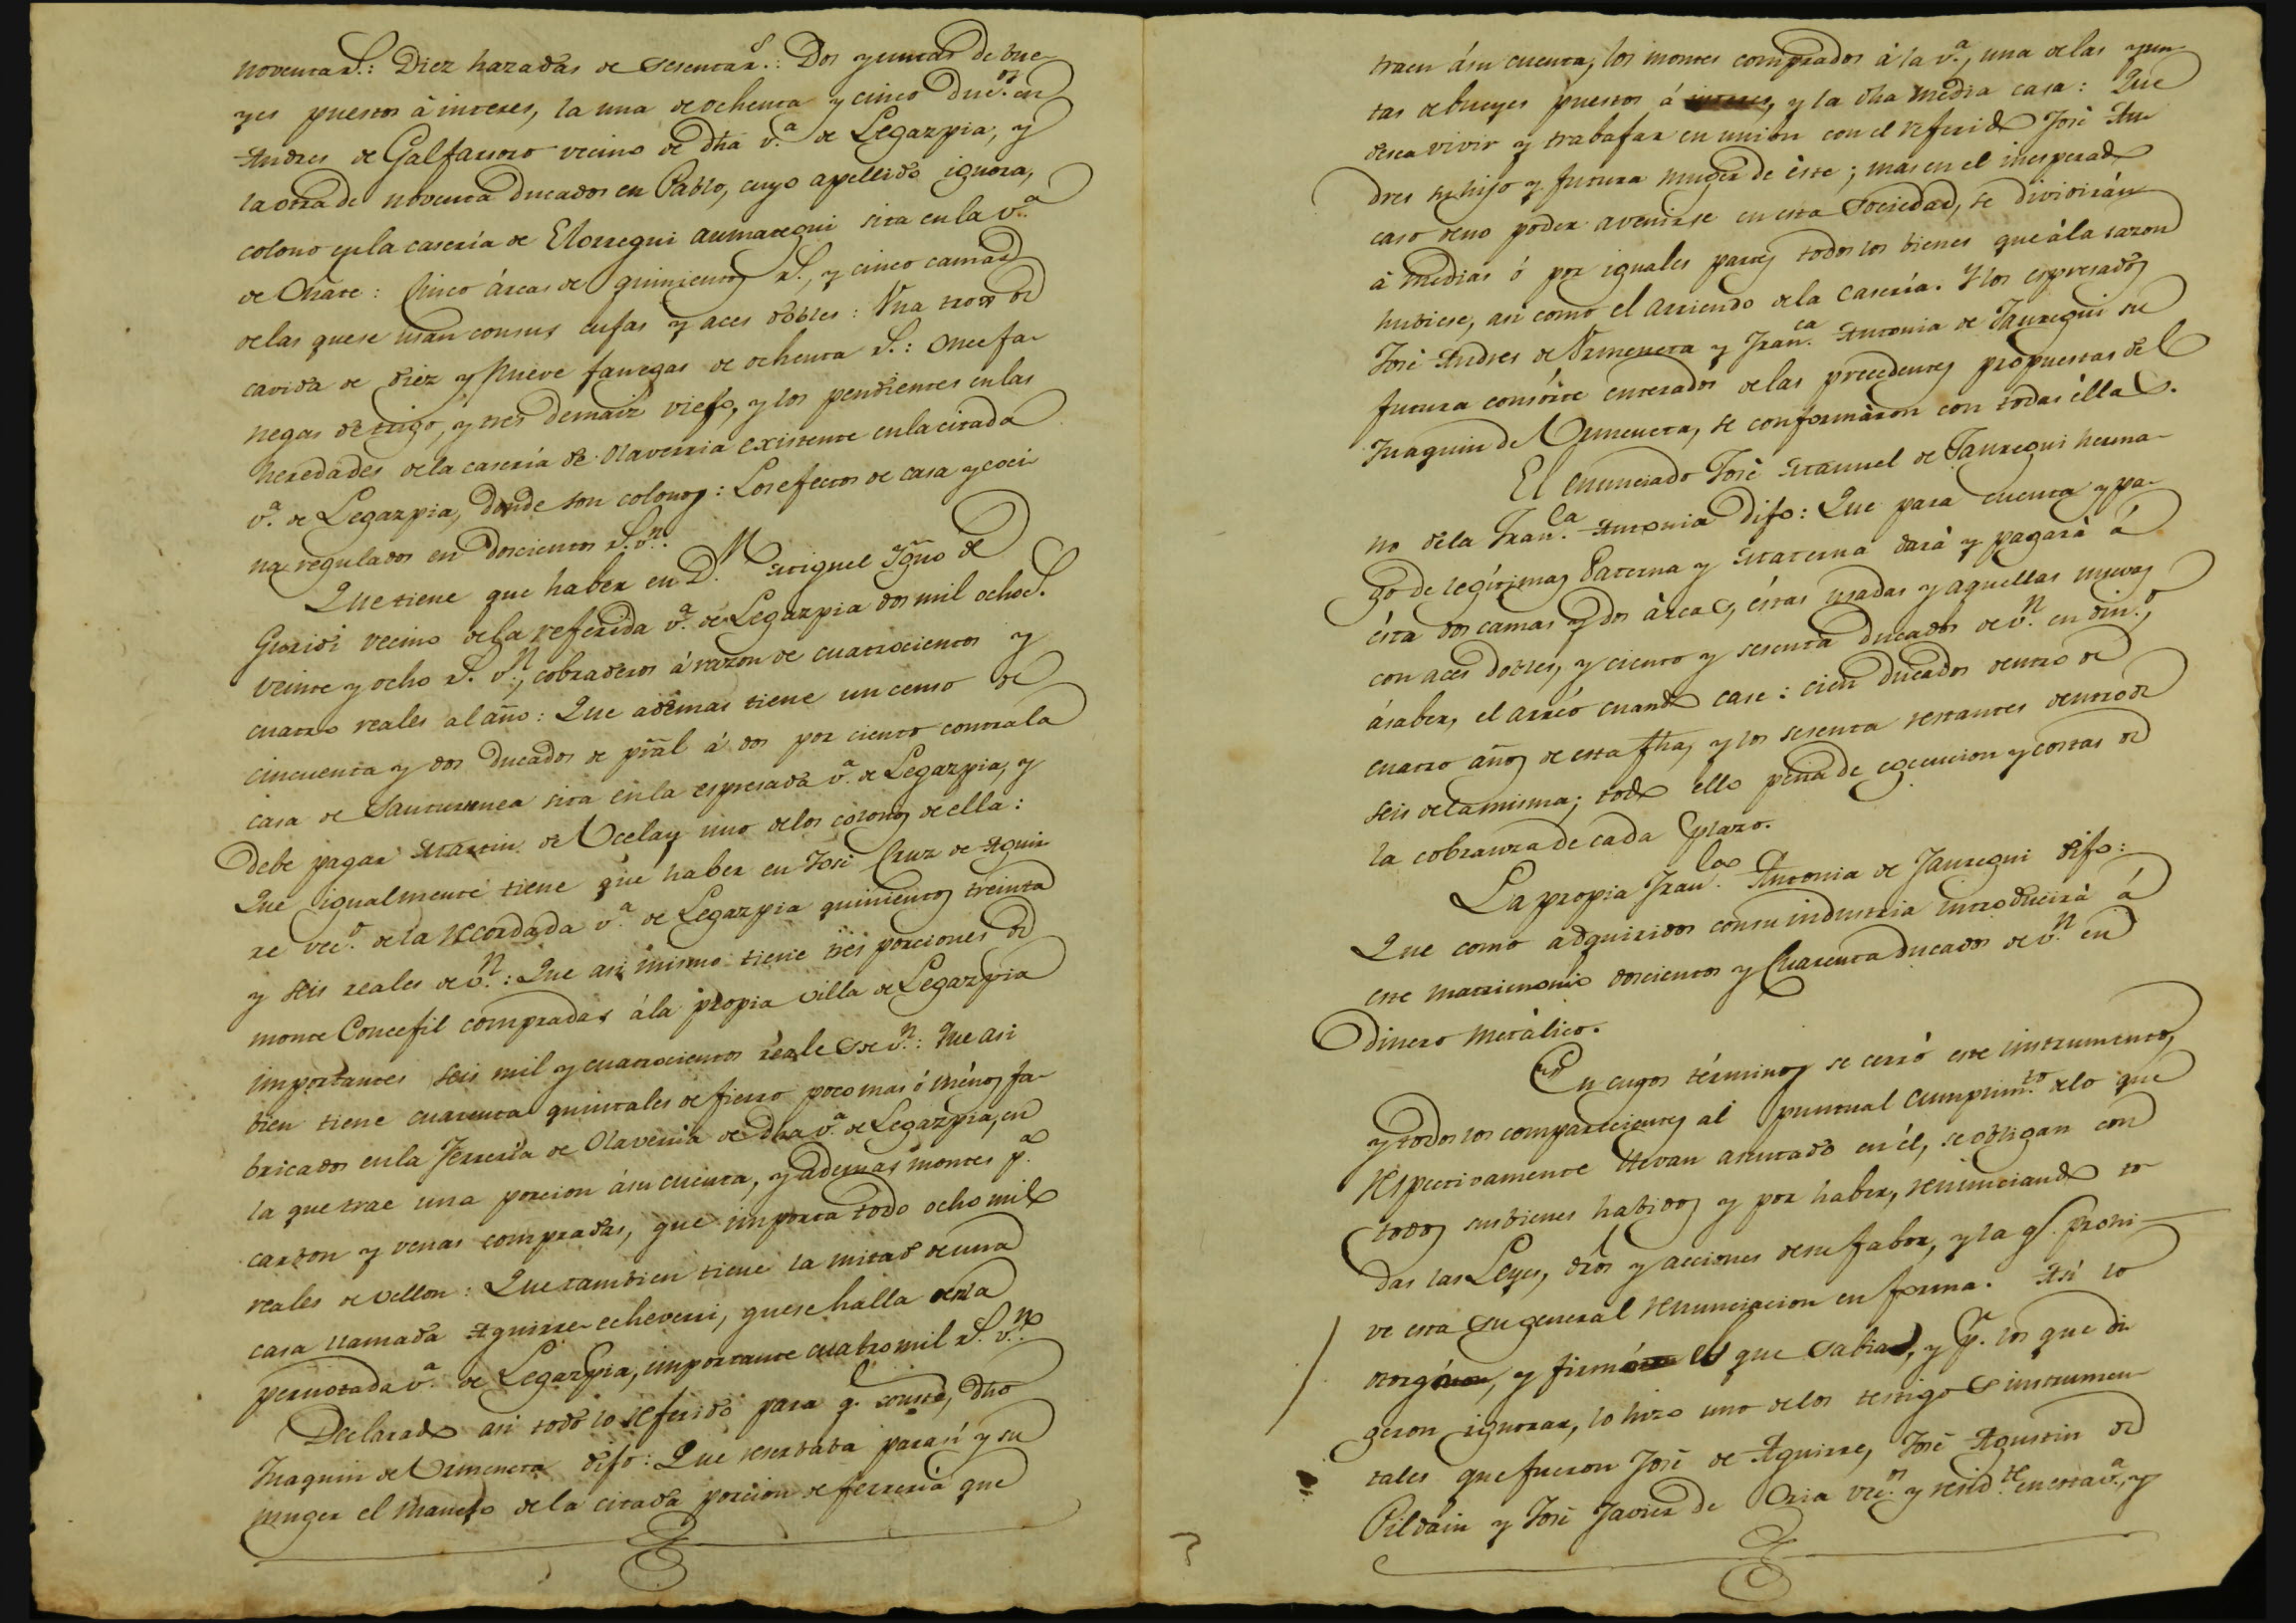 noventa r.s: Diez hazadas de sesenta r.s: Dos yuntas de bue-
yes puestos à interes, la una de ochenta y cinco duc.os en
Andres de Galfarsoro vecino de dha v.a de Legazpia, y
la otra de noventa ducados en Pablo, cuyo apellido ignora,
colono en la casería de Elorregui aumategui sita en la v.a
de Oñate: Cinco árcas de quinientos r.s, y cinco camas
de las que se usan con sus cujas y aces dobles: Una trox de
cavida de diez y Nueve fanegas de ochenta r.s: once fa-
negas de trigo, y tres de maiz viejo, y los pendientes en las
heredades de la casería de Olaverria existente en la citada
v.a de Legazpia, donde son colonos: Los efectos de casa y coci-
na regulados en doscientos r.s v.n.
Que tiene que haber en D.n Miguel Ygno de
Guridi vecino de la referida v.a de Legazpia dos mil ochoc.s
veinte y ocho r.s v.n, cobraderos á razon de cuatrocientos y
cuatro reales al año: Que ademas tiene un censo de
cincuenta y dos ducados de pral á dos por ciento contra la
casa de Santurunea sita en la espresada v.a de Legazpia, y
debe pagar Martin de Ucelay uno de los colonos de ella:
Que igualmente tiene que haber en José Cruz de Aguir-
re vec.o de la recordada v.a de Legazpia quinientos treinta
y seis reales de v.n: Que asi mismo tiene tres porciones de
monte Concejil compradas á la propia villa de Legazpia
importantes seis mil y cuatrocientos reales de v.n: Que asi
bien tiene cuarenta quintales de fierro poco mas ó ménos fa-
bricados en la Ferrería de Olaverria de dha v.a de Legazpia, en
la que trae una porcion á su cuenta, y ademas montes p.a
carbon y venas compradas, que importa todo ocho mil
reales de vellon: Que tambien tiene la mitad de una
casa llamada Aguirre-echeverri, que se halla en la
pernotada v.a de Legazpia, importante cuatro mil r.s v.n
Declarado asi todo lo referido para q.e conste, dho
Juaquin de Urmeneta dijo: Que reserbaba para sí y su
muger el manejo de la citada porcion de ferrería que
traen á su cuenta, los montes comprados à la v.a, una de las yun-
tas de bueyes puestos á interes, y la dha media casa: Que
desea vivir y trabajar en union con el referido José An-
dres su hijo y futura muger de éste; mas en el inesperado
caso de no poder avenirse en esta Sociedad, se dividirán
à medias ó por iguales partes todos los bienes que á la sazon
hubiese, asi como el arriendo de la casería. Y los espresados
José Andres de Urmeneta y Fran.ca Antonia de Jauregui su
futura consórte enterados de las precedentes propuestas del
Juaquin de Urmeneta, se conformáron con todas éllas.
El enunciado José Manuel de Jauregui herma-
no de la Fran.ca Antonia dijo: Que para cuenta y pa-
go de legítimas Paterna y Materna dará y pagará á
ésta dos camas y dos árcas, éstas usadas y aquellas nuevas
con aces dobles, y ciento y sesenta ducados de v.n en din.o,
á saber, el arréo cuando case: cien ducados dentro de
cuatro años de esta fha, y los sesenta restantes dentro de
seis de la misma; todo ello pena de egecucion y costas de
la cobranza de cada plazo.
La propia Fran.ca Antonia de Jauregui dijo:
Que como adquiridos con su industria introducirá á
este matrimonio doscientos y Cuarenta ducados de v.n en
dinero metálico.
En cuyos términos se cerró este instrumento,
y todos los comparecientes al puntual cumplim.to de lo que
respectivamente llevan asentado en él, se obligan con
todos sus bienes habidos y por haber, renunciando to-
das las Leyes, dros y acciones de su fabor, y la q.e prohi-
ve esta su general renunciacion en forma. Asi lo
otorgáron, y firmó el que sabia, y p.r los que di-
geron ignorar, lo hizo uno de los testigos instrumen-
tales que fueron José de Aguirre, José Agustin de
Pildáin y José Javier de Oria vec.os y resid.te en esta v.a, y